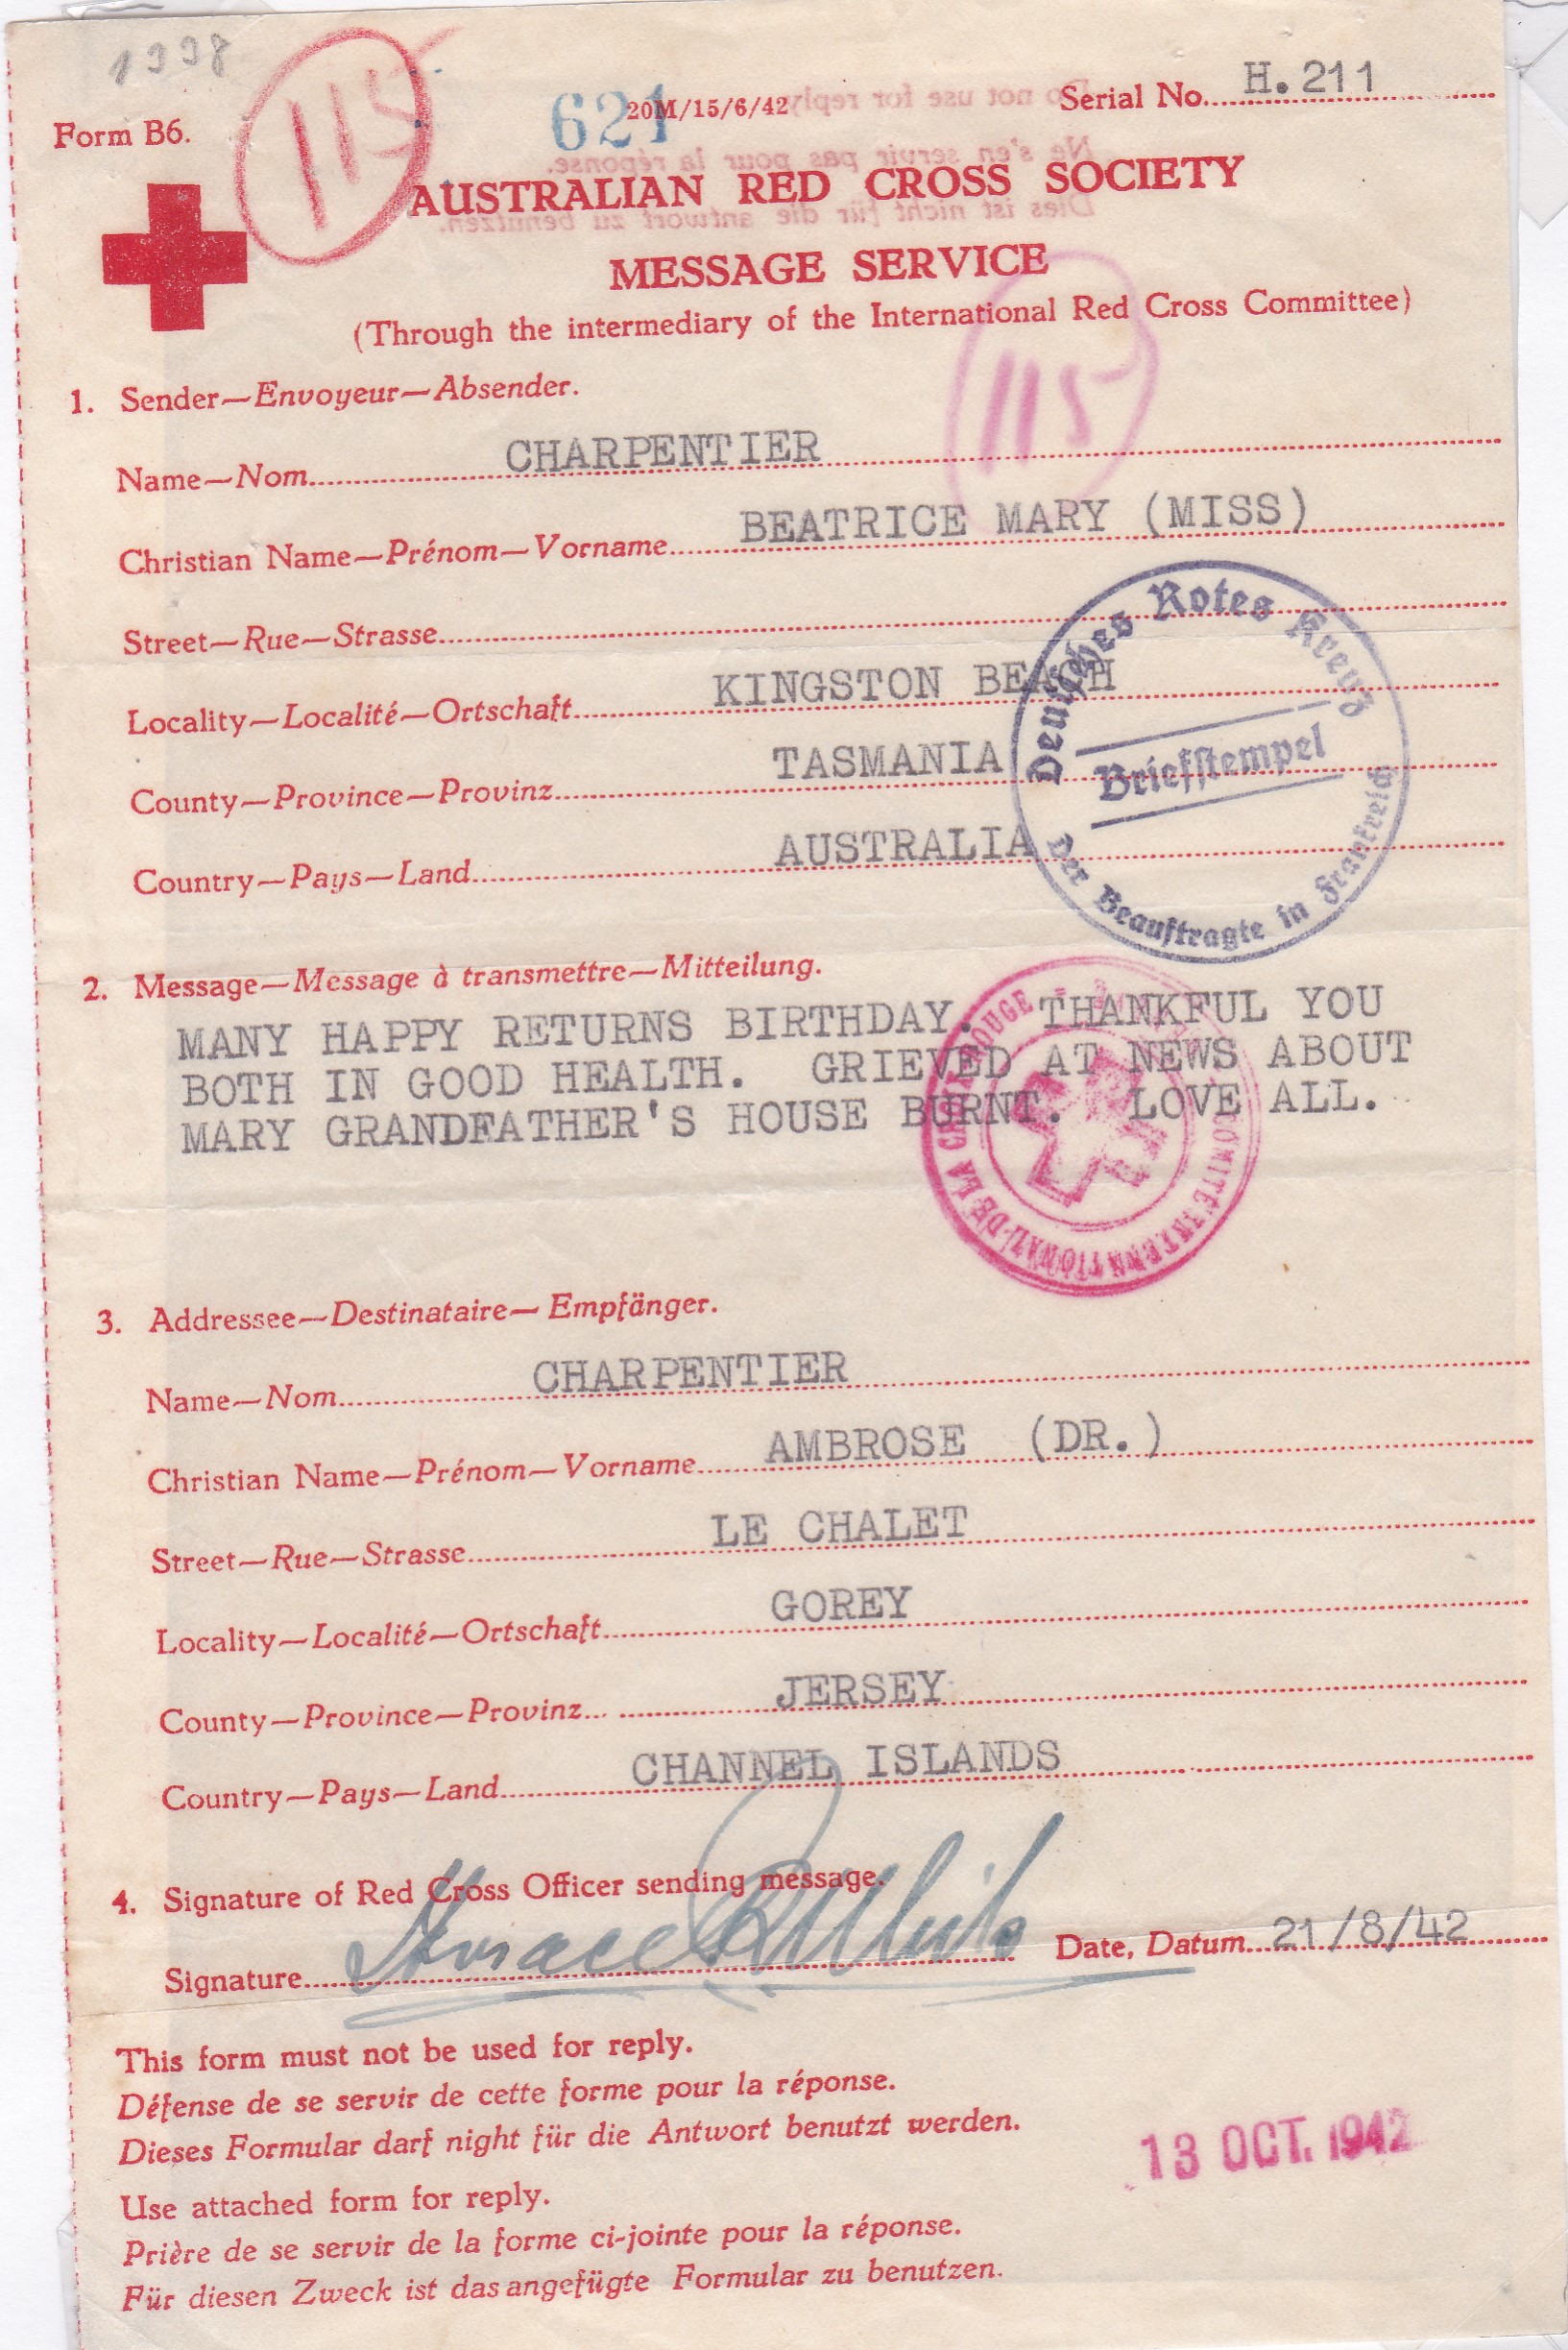 1338
115
621
20M/15/6/42
Serial No. H. 211
Form B6.
AUSTRALIAN RED CROSS SOCIETY
MESSAGE SERVICE
(Through the intermediary of the International Red Cross Committee)
115
1. Sender—Envoyeur—Absender.
Name—Nom CHARPENTIER
Christian Name—Prénom—Vorname BEATRICE MARY (MISS)
Street—Rue—Strasse
Locality—Localité—Ortschaft KINGSTON BEACH
County—Province—Provinz TASMANIA
Country—Pays—Land AUSTRALIA
Deutsches Rotes Kreuz
Briefstempel
Der Beauftragte in Frankreich
2. Message—Message à transmettre—Mitteilung.
MANY HAPPY RETURNS BIRTHDAY. THANKFUL YOU
BOTH IN GOOD HEALTH. GRIEVED AT NEWS ABOUT
MARY GRANDFATHER'S HOUSE BURNT. LOVE ALL.
COMITÉ INTERNATIONAL DE LA CROIX ROUGE
3. Addressee—Destinataire—Empfänger.
Name—Nom CHARPENTIER
Christian Name—Prénom—Vorname AMBROSE (DR.)
Street—Rue—Strasse LE CHALET
Locality—Localité—Ortschaft GOREY
County—Province—Provinz JERSEY
Country—Pays—Land CHANNEL ISLANDS
4. Signature of Red Cross Officer sending message.
Signature Horace Date, Datum 21/8/42
This form must not be used for reply.
Défense de se servir de cette forme pour la réponse.
Dieses Formular darf night für die Antwort benutzt werden.
13 OCT. 1942
Use attached form for reply.
Prière de se servir de la forme ci-jointe pour la réponse.
Für diesen Zweck ist das angefügte Formular zu benutzen.